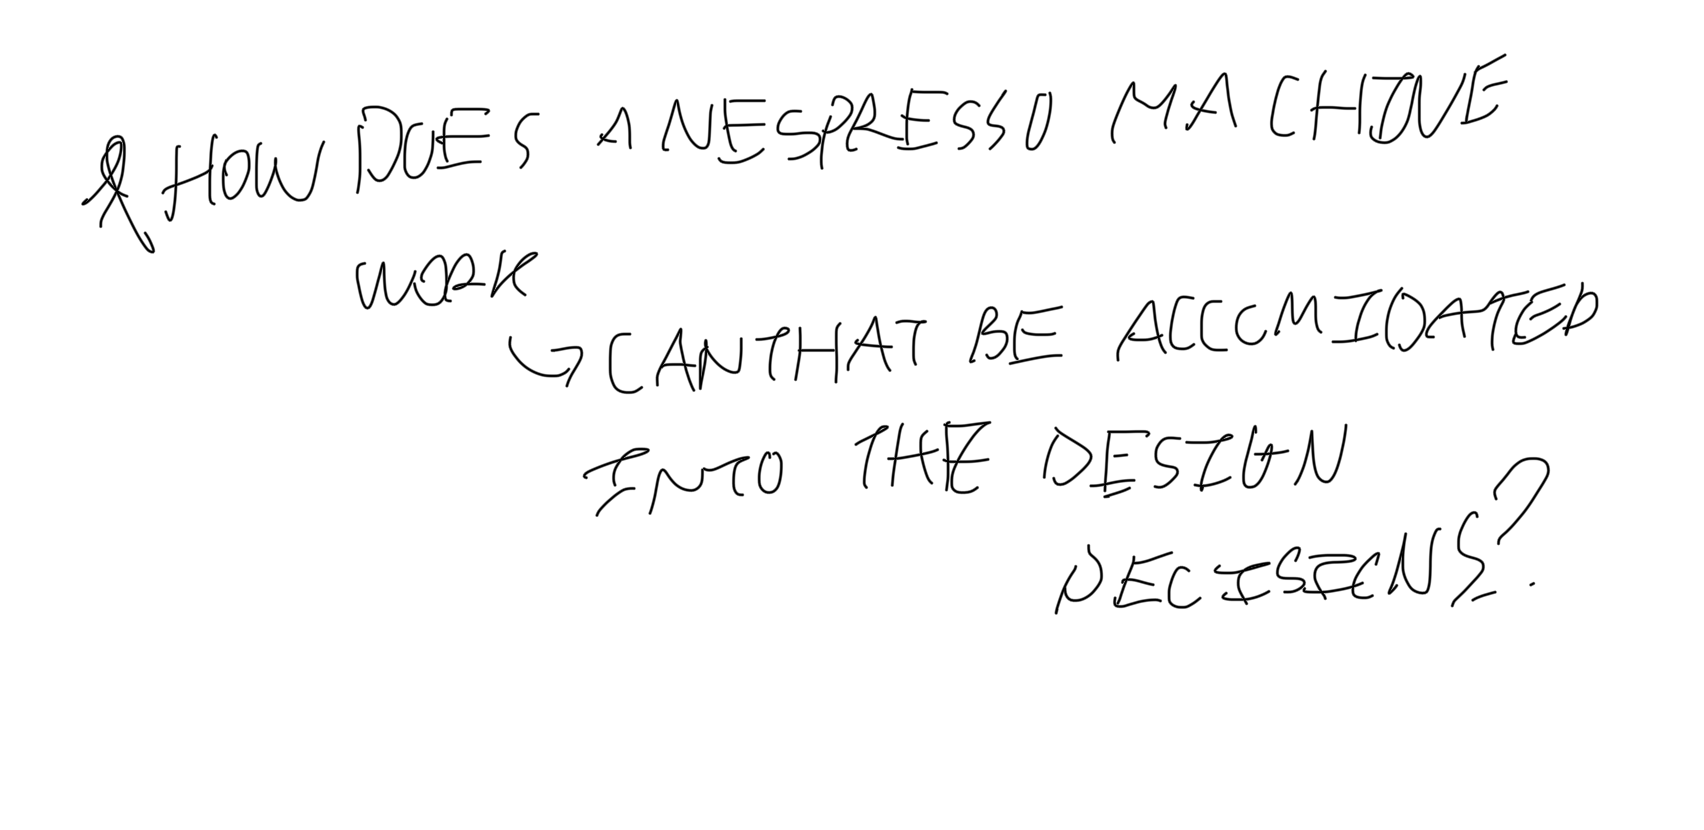 HOW DOES A NESPRESSO MACHINE
WORK
CAN THAT BE ACCOMIDATED
INTO THE DESIGN
DECISIONS?